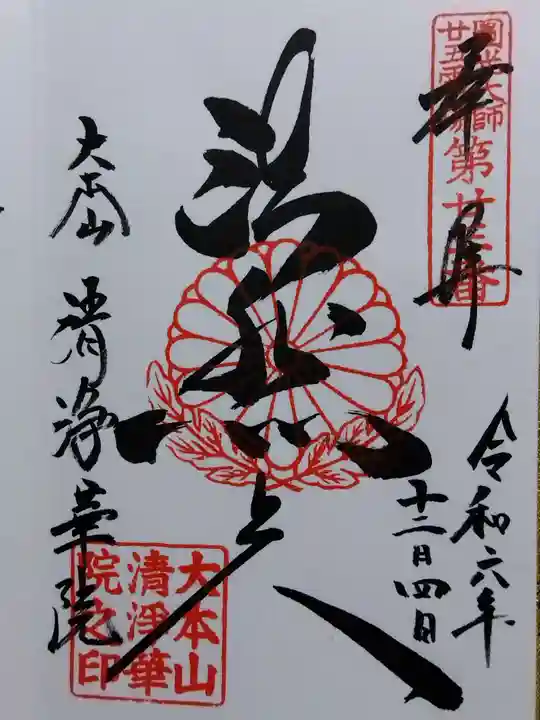 奉拝
圓光大師
廿五霊場
第廿三番
令和六年
十二月四日
法然上人
大本山
清浄華院
大本山
清浄華
院之印